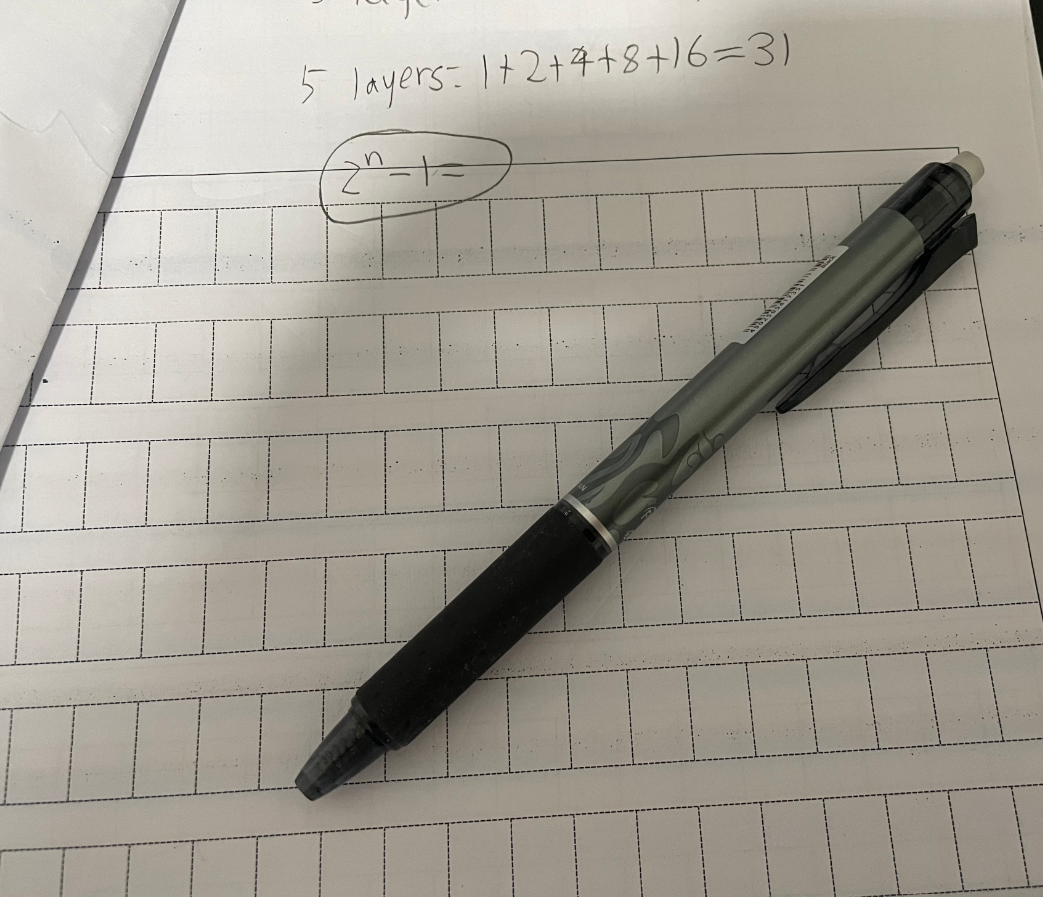 5 layers: 1+2+4+8+16=31
2ⁿ-1=